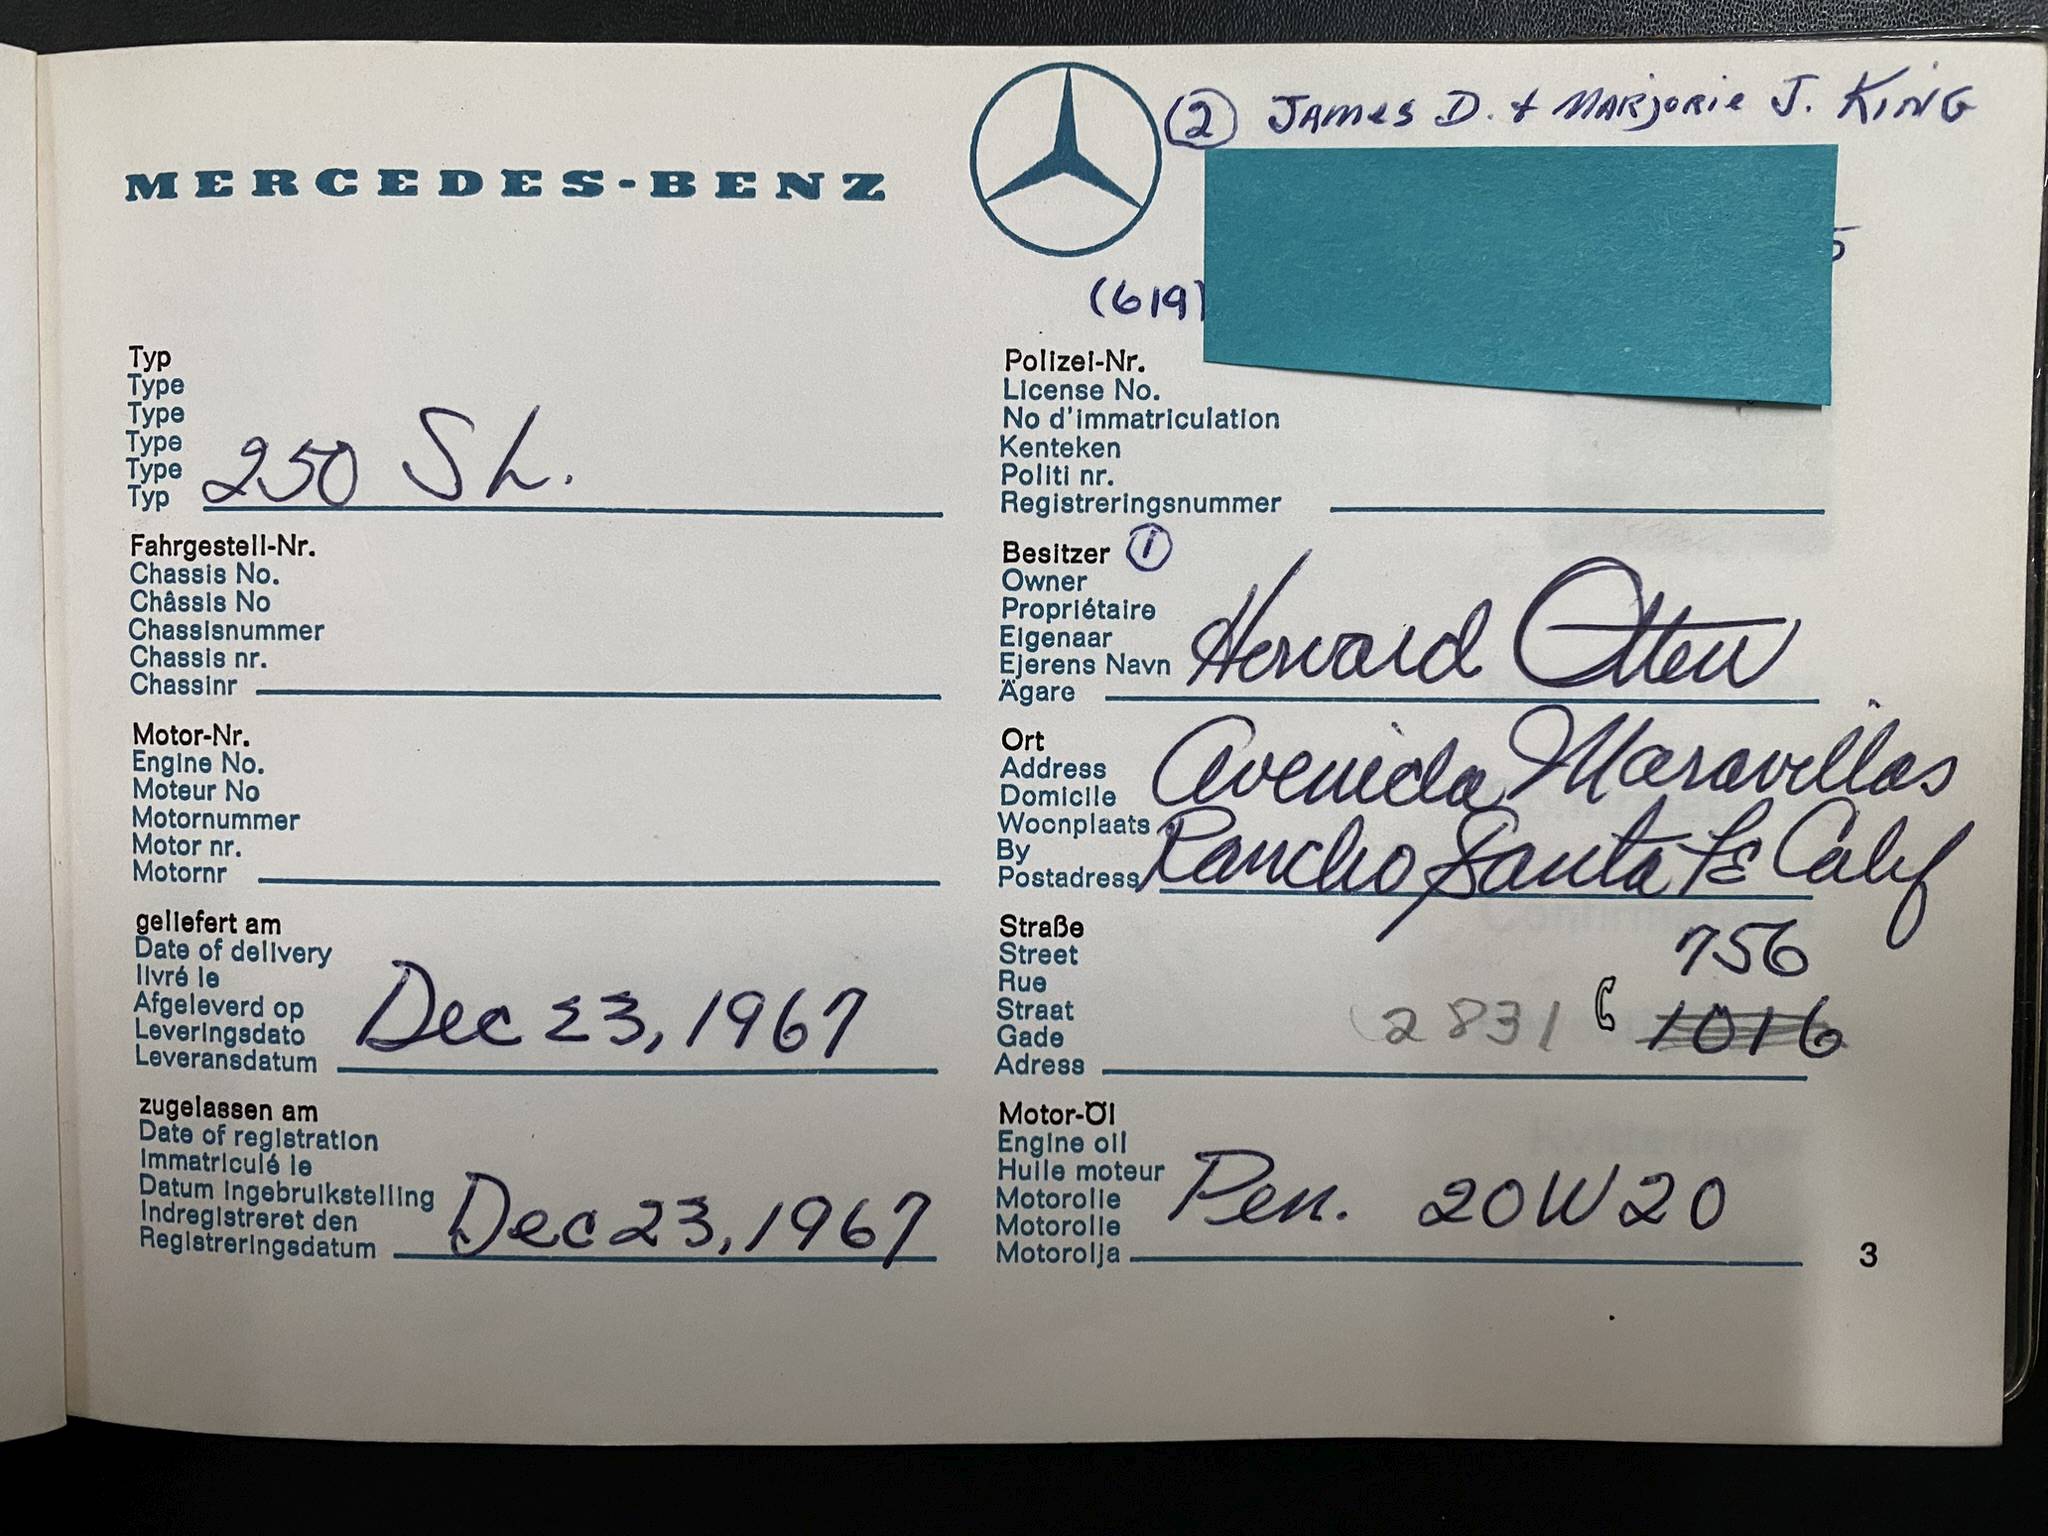 ② James D. & Marjorie J. King
MERCEDES-BENZ
(619)
Typ
Type
Type
Type
Type
Typ 250 SL.
Polizei-Nr.
License No.
No d'immatriculation
Kenteken
Politi nr.
Registreringsnummer
Fahrgestell-Nr.
Chassis No.
Châssis No
Chassisnummer
Chassis nr.
Chassinr
Besitzer ①
Owner
Propriétaire
Eigenaar
Ejerens Navn Howard Otten
Ägare
Motor-Nr.
Engine No.
Moteur No
Motornummer
Motor nr.
Motornr
Ort
Address
Domicile Avenida Maravillas
Woonplaats
By
Postadress Rancho Santa Fe Calif
geliefert am
Date of delivery
livré le
Afgeleverd op
Leveringsdato
Leveransdatum Dec 23, 1967
Straße
Street 756
Rue
Straat
Gade 2831 1016
Adress
zugelassen am
Date of registration
Immatriculé le
Datum ingebruikstelling
Indregistreret den
Registreringsdatum Dec 23, 1967
Motor-Öl
Engine oil
Huile moteur
Motorolie Pen. 20W20
Motorolie
Motorolja
3